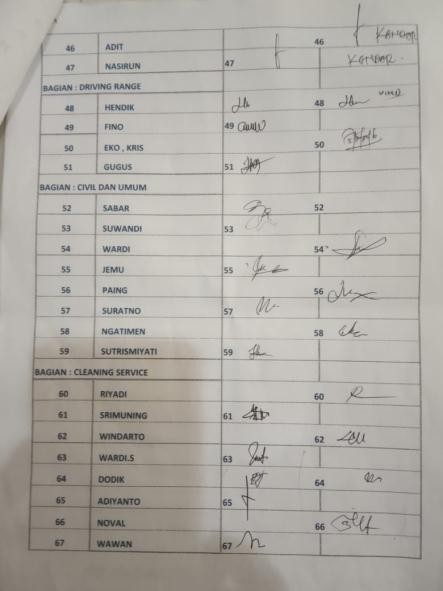 46 ADIT 46 KAMDAR
47 NASIRUN 47 KAMDAR.
BAGIAN : DRIVING RANGE
48 HENDIK 48
49 FINO 49
50 EKO , KRIS 50
51 GUGUS 51
BAGIAN : CIVIL DAN UMUM
52 SABAR 52
53 SUWANDI 53
54 WARDI 54
55 JEMU 55
56 PAING 56
57 SURATNO 57
58 NGATIMEN 58
59 SUTRISMIYATI 59
BAGIAN : CLEANING SERVICE
60 RIYADI 60
61 SRIMUNING 61
62 WINDARTO 62
63 WARDI.S 63
64 DODIK 64
65 ADIYANTO 65
66 NOVAL 66
67 WAWAN 67